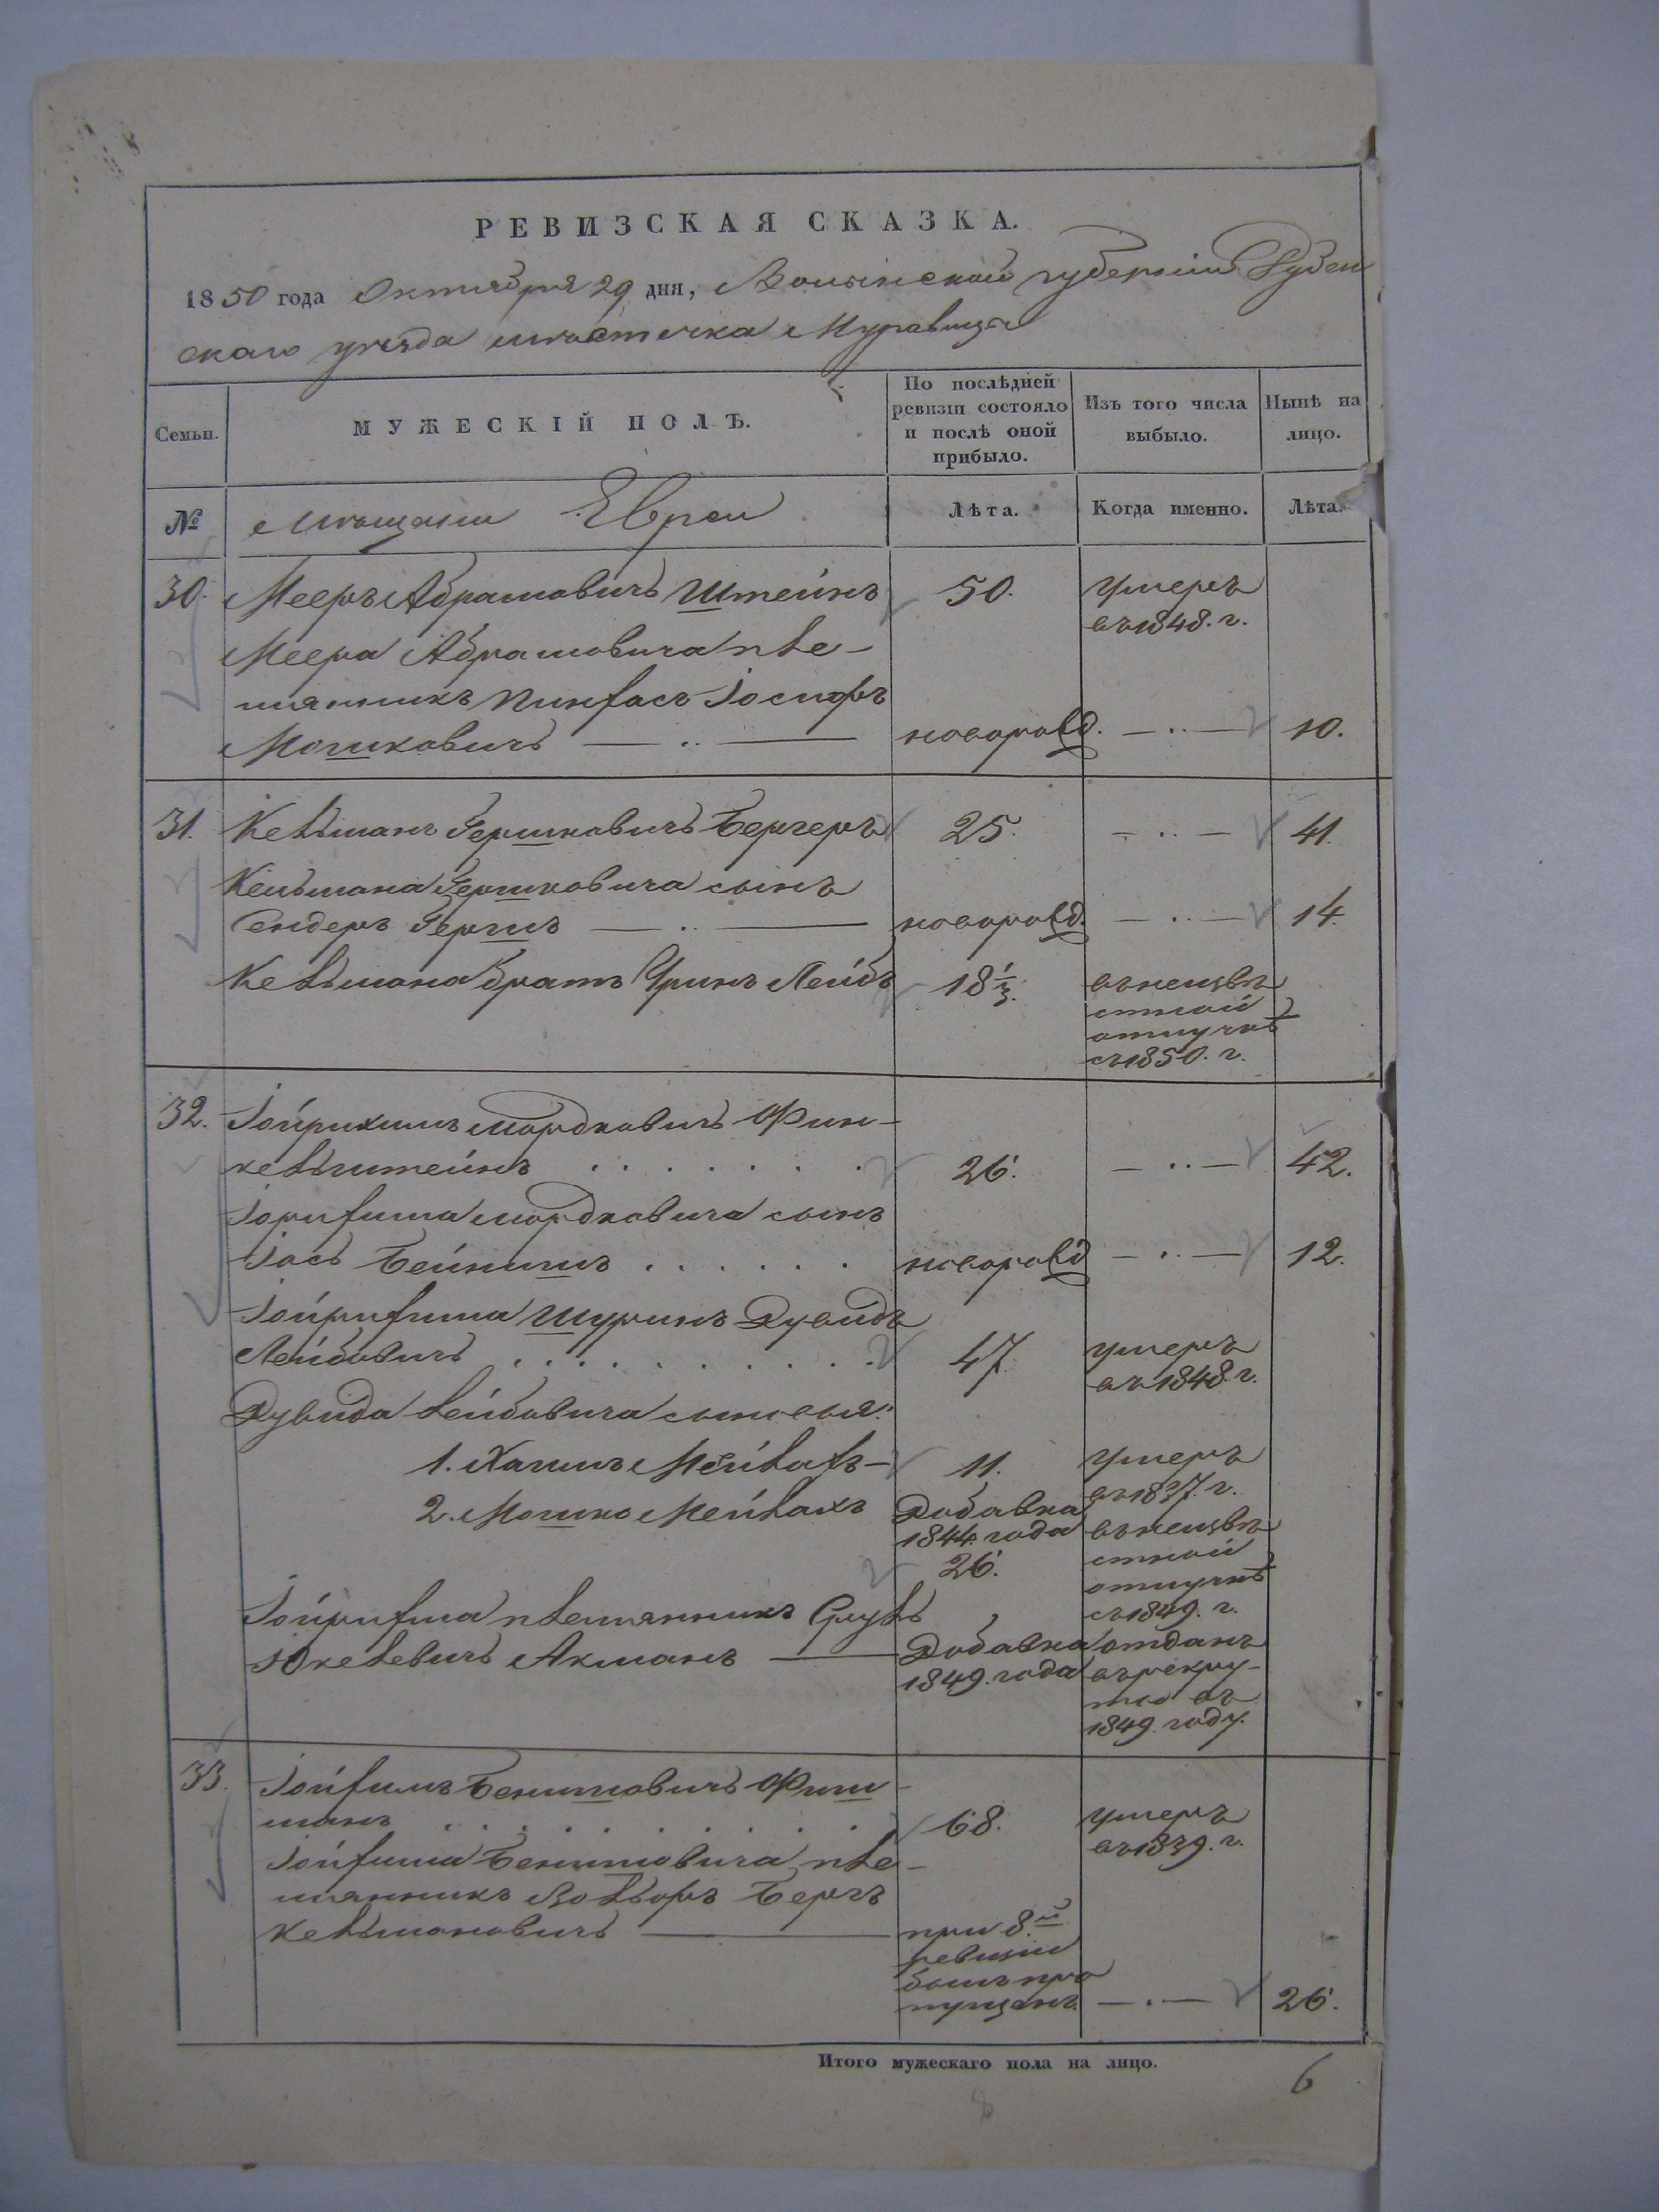 РЕВИЗСКАЯ СКАЗКА.
1850 года Октября 29 дня, Волынской губернии Дубен
скаго уѣзда мѣстечка Муравица
Семьи.
МУЖЕСКІЙ ПОЛЪ.
По послѣдней
ревизіи состояло
и послѣ оной
прибыло.
Изъ того числа
выбыло.
Нынѣ на
лицо.
№
Мѣщани Евреи
Лѣта.
Когда именно.
Лѣта.
30. Мееръ Абрамовичъ Штейнъ 50. умеръ
въ 1848. г.
Меера Абрамовича пле-
мянникъ Пинхасъ Іосифъ
Мошковичъ — .. — новорожд. — .. — 10.
31. Кельманъ Гершковичъ Бергеръ 25. — .. — 41.
Кельмана Гершковича сынъ
Сендеръ Гершъ — .. — новорожд. — .. — 14.
Кельмана братъ Уринъ Лейбъ 18 1/2. въ неизвѣ
стной
отлучкѣ
съ 1850. г.
32. Мордковичъ Фин-
кельштейнъ . . . . . . . 26. — .. — 42.
Мордковича сынъ
Іось Бейнишъ . . . . . . новорожд — .. — 12.
Шуринъ Дувидъ
Лейбовичъ . . . . . . . . . . . 47. умеръ
въ 1848. г.
Дувида Лейбовича сыновья:
1. Хаимъ Мейлахъ — 11. умеръ
въ 1837. г.
2. Мошко Мейлахъ Добавка
1844. года
26.
въ неизвѣ
стной
отлучкѣ
съ 1849. г.
племянникъ Сруль
Юкелевичъ Акманъ — Добавка
1849. года
отданъ
въ рекру-
ты въ
1849. году.
33. Іойхимъ Бенишовичъ Фиш
манъ . . . . . . . . . . 68. умеръ
въ 1839. г.
Іойхима Бенишовича пле-
мянникъ Вольфъ Беръ
Кельмановичъ — при 8.й
ревизіи
былъ про
пущенъ. — . — 26.
Итого мужескаго пола на лицо.
6
8